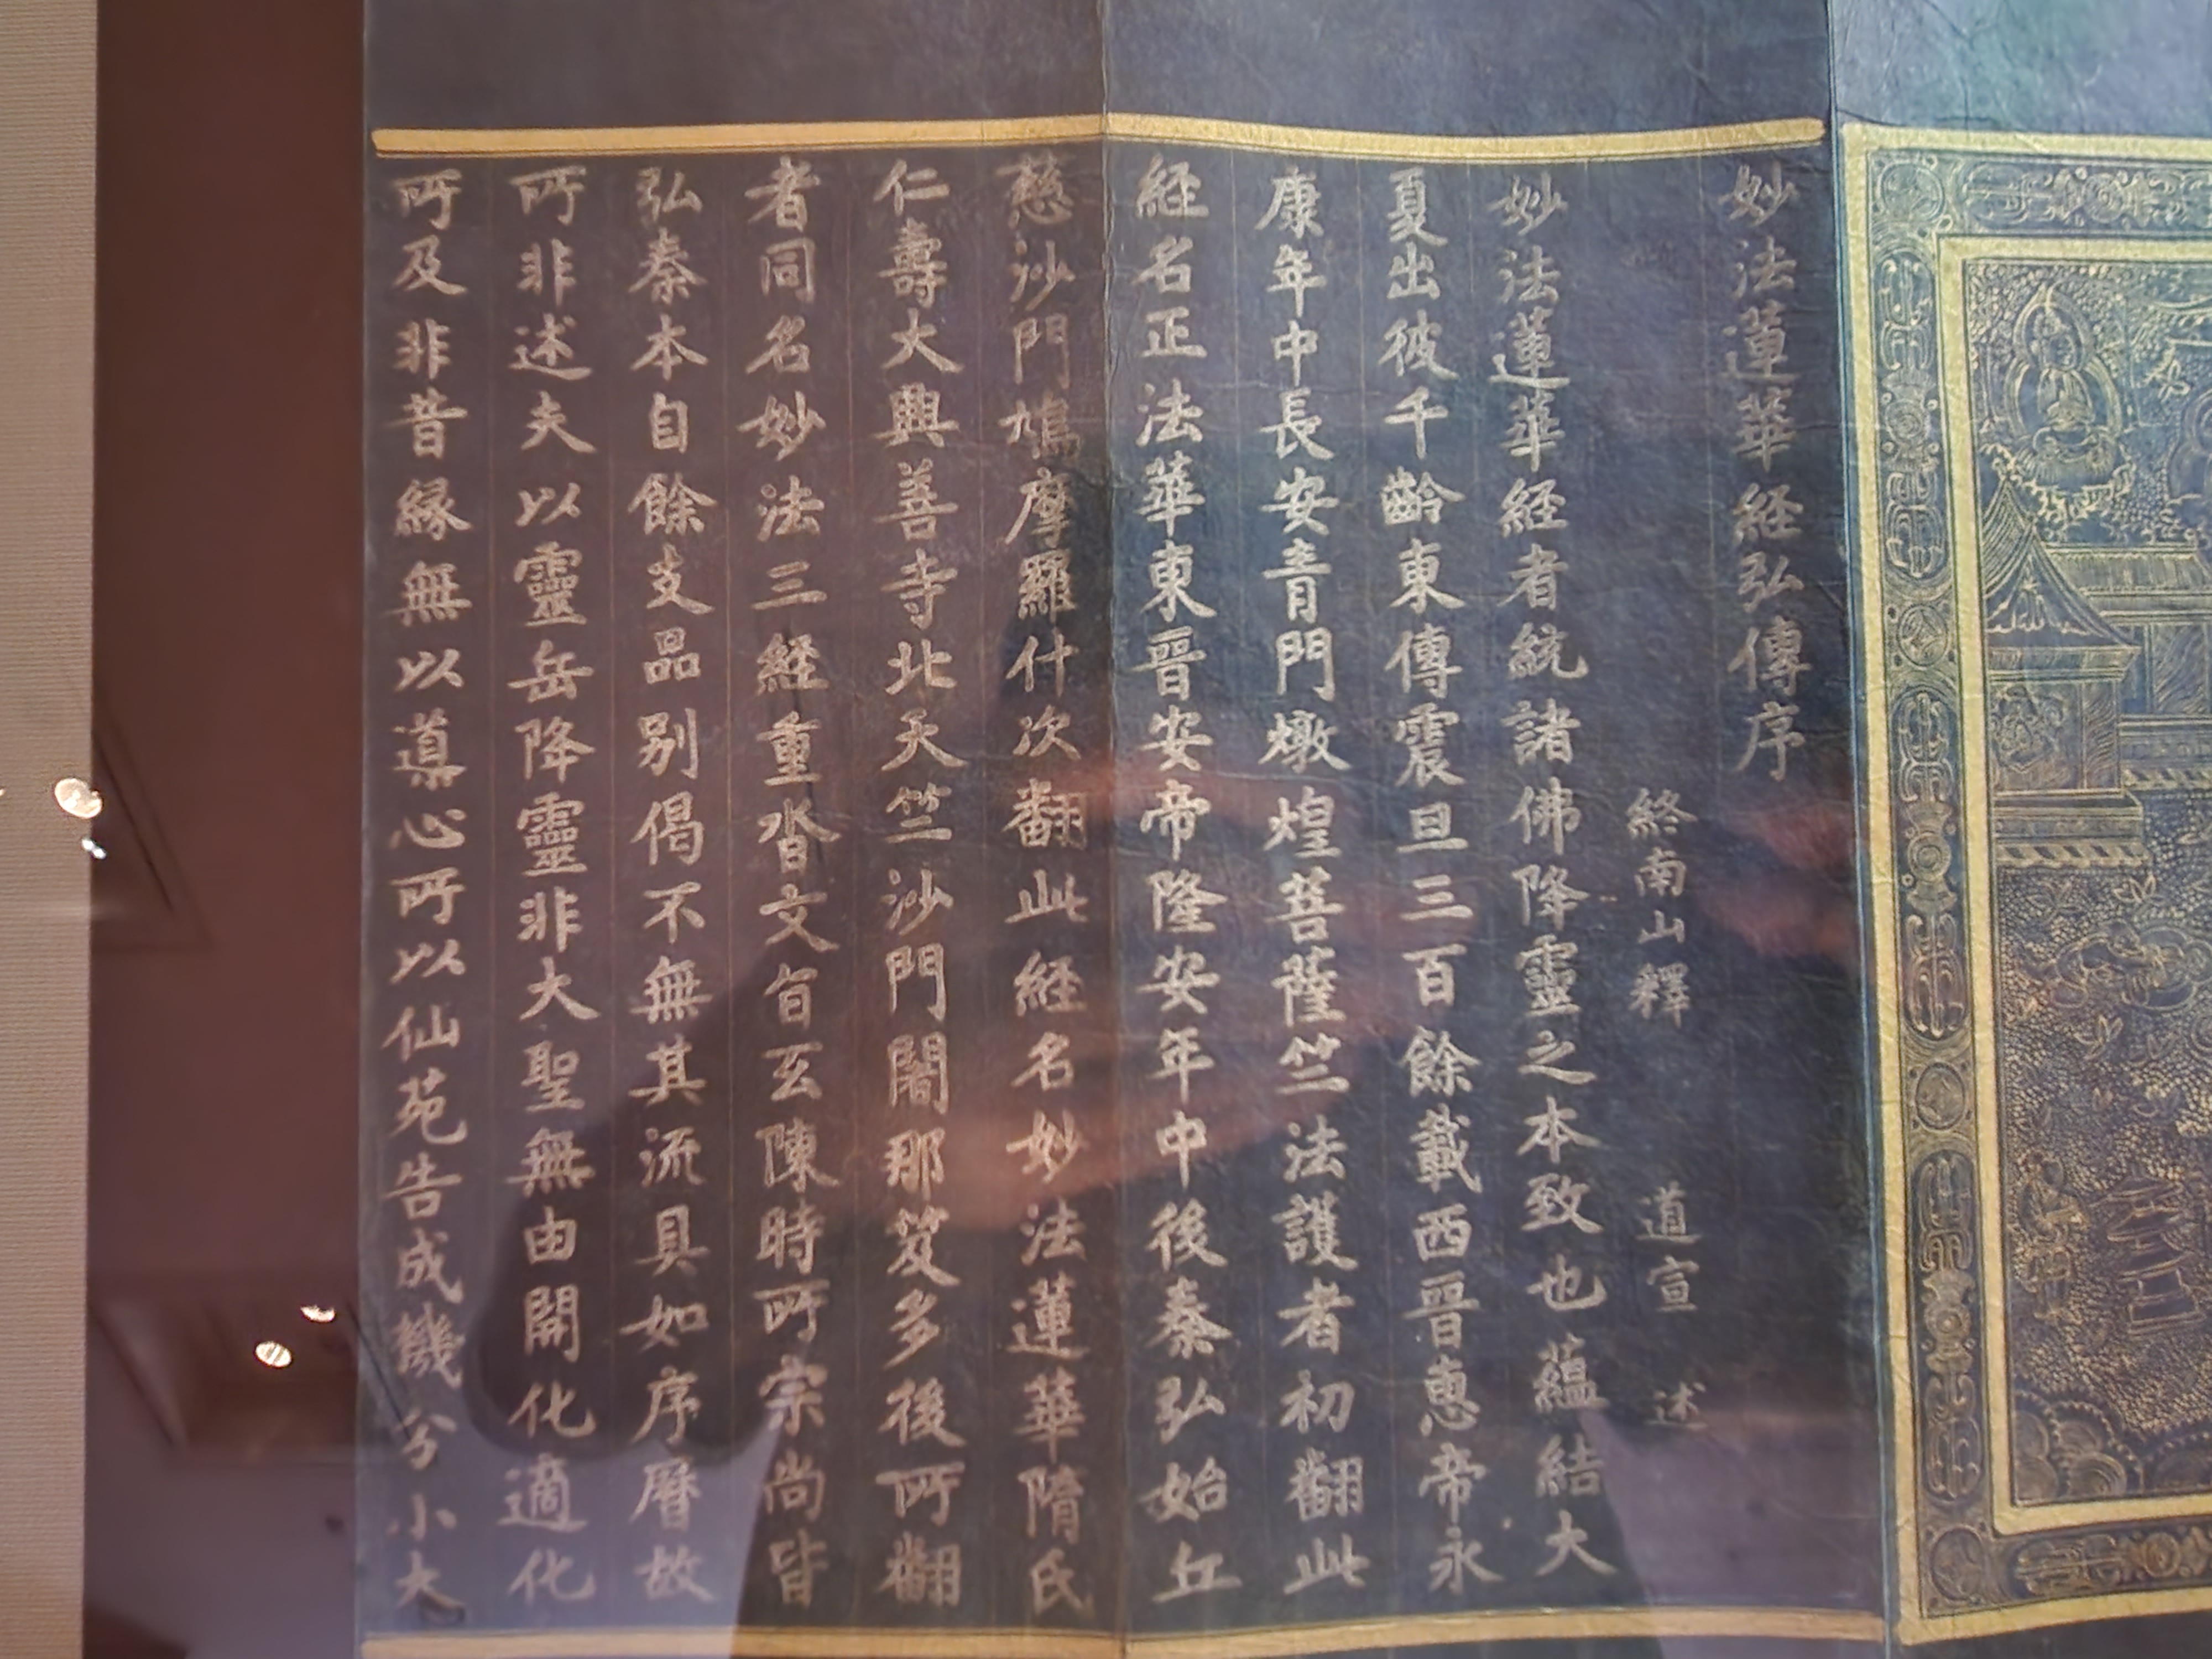 妙法蓮華経弘傳序
終南山釋 道宣 述
妙法蓮華経者統諸佛降靈之本致也蘊結大
夏出彼千齡東傳震旦三百餘載西晉恵帝永
康年中長安青門燉煌菩薩竺法護者初翻此
経名正法華東晉安帝隆安年中後秦弘始丘
慈沙門鳩摩羅什次翻此経名妙法蓮華隋氏
仁壽大興善寺北天竺沙門闍那笈多後所翻
者同名妙法三経重沓文旨互陳時所宗尚皆
弘秦本自餘支品別偈不無其流具如序曆故
所非述夫以靈岳降靈非大聖無由開化適化
所及非昔縁無以導心所以仙苑告成機分小大